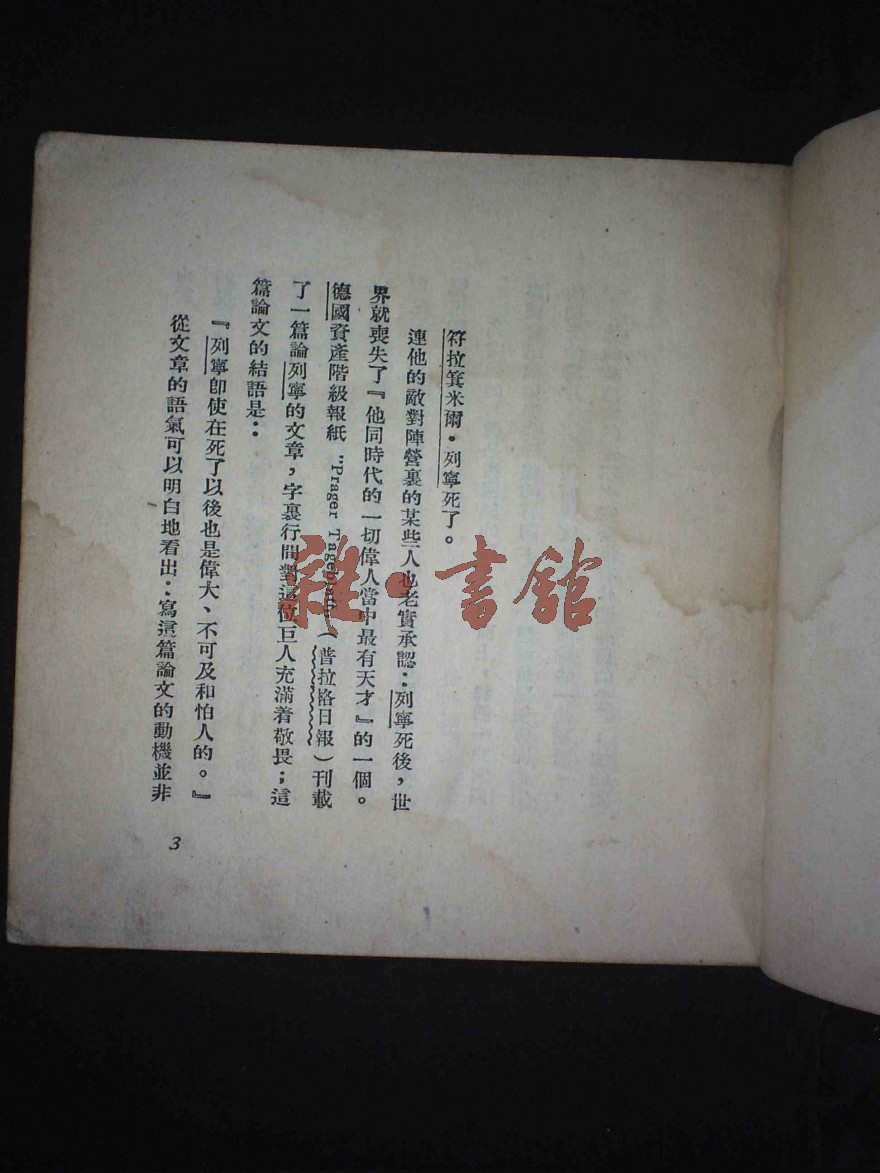 符拉箕米爾·列寧死了。
連他的敵對陣營裏的某些人也老實承認：列寧死後，世
界就喪失了『他同時代的一切偉人當中最有天才』的一個。
德國資產階級報紙 "Prager Tageblatt"（普拉格日報）刊載
了一篇論列寧的文章，字裏行間對這位巨人充滿着敬畏；這
篇論文的結語是：
『列寧卽使在死了以後也是偉大、不可及和怕人的。』
從文章的語氣可以明白地看出：寫這篇論文的動機並非
3
雜·書館